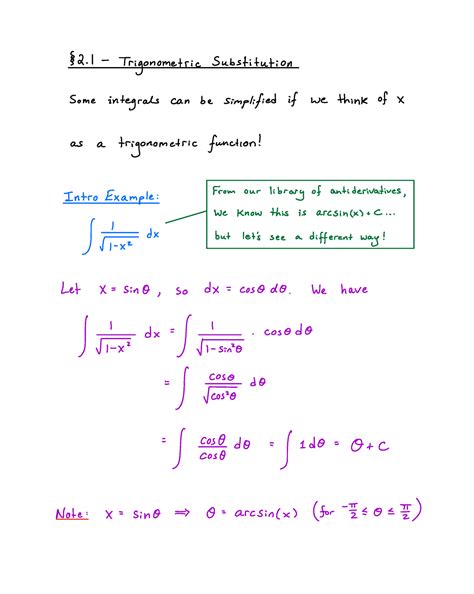 §2.1 – Trigonometric Substitution
Some integrals can be simplified if we think of x
as a trigonometric function!
Intro Example:
∫ 1/√(1-x²) dx
From our library of antiderivatives,
we know this is arcsin(x)+C...
but let's see a different way!
Let x = sinθ, so dx = cosθ dθ. We have
∫ 1/√(1-x²) dx = ∫ 1/√(1-sin²θ) · cosθ dθ
= ∫ cosθ/√(cos²θ) dθ
= ∫ cosθ/cosθ dθ = ∫ 1 dθ = θ + C
Note: x = sinθ ⟹ θ = arcsin(x) (for -π/2 ≤ θ ≤ π/2)